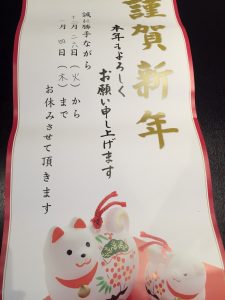 謹賀新年
本年もよろしく
お願い申し上げます
誠に勝手ながら
十二月二六日（火）から
一月四日（木）まで
お休みさせて頂きます